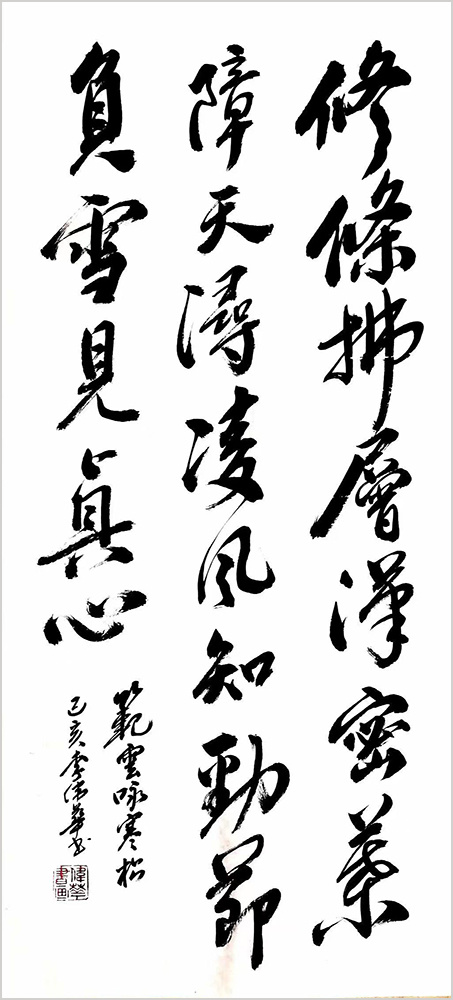 修條拂層漢密葉
障天潯凌風知勁節
負雪見真心
範雲咏寒松
己亥李偉華书
偉華
書画